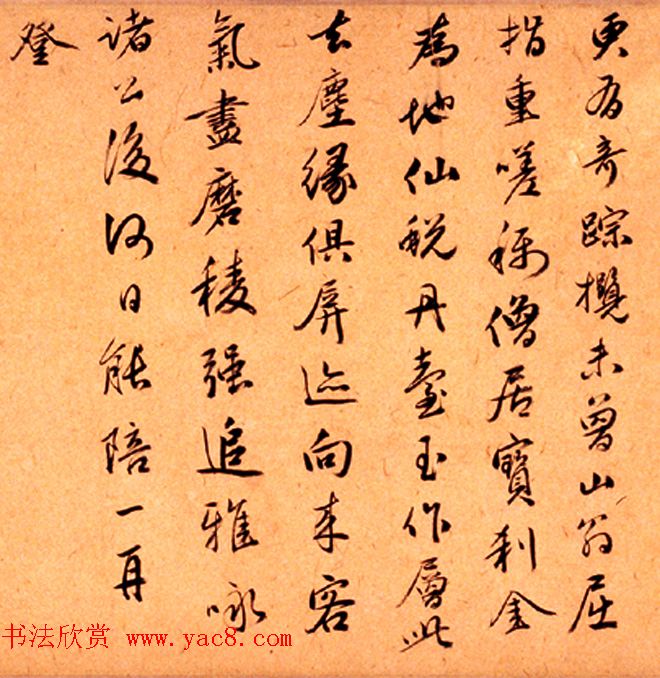 更有奇踪攬未曾山翁屈
指重嗟稱僧居寶刹金
為地仙蜕丹臺玉作層此
去塵緣俱屏迹向来客
氣盡磨稜强追雅咏
諸公後何日能陪一再
登
书法欣赏 www.yac8.com